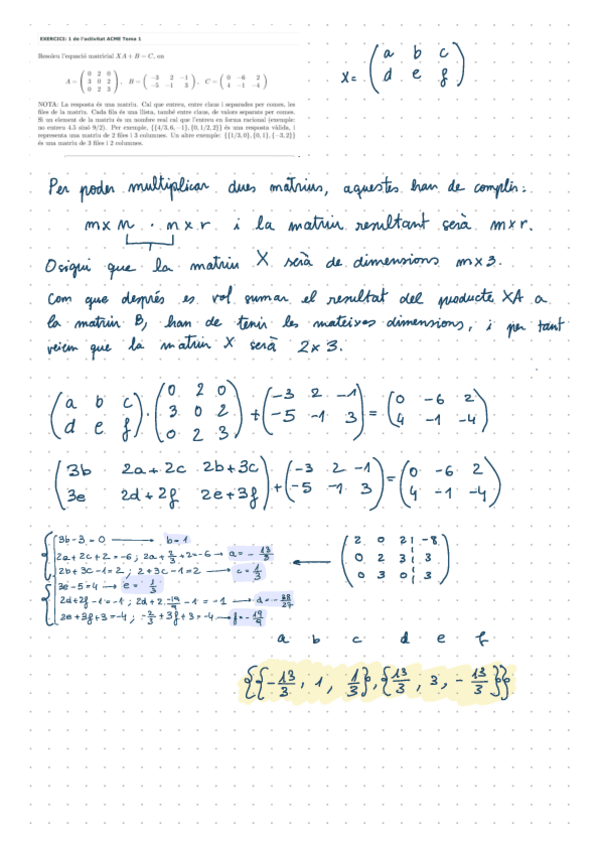 EXERCICI: 1 de l'activitat ACME Tema 1
Resoleu l'equació matricial XA + B = C, on
A = ( 0 2 0 ; 3 0 2 ; 0 2 3 ), B = ( −3 2 −1 ; −5 −1 3 ), C = ( 0 −6 2 ; 4 −1 −4 )
NOTA: La resposta és una matriu. Cal que entreu, entre claus i separades per comes, les
files de la matriu. Cada fila és una llista, també entre claus, de valors separats per comes.
Si un element de la matriu és un nombre real cal que l'entreu en forma racional (exemple:
no entreu 4.5 sinó 9/2). Per exemple, {{4/3, 6, −1}, {0, 1/2, 2}} és una resposta vàlida, i
representa una matriu de 2 files i 3 columnes. Un altre exemple: {{1/3, 0}, {0, 1}, {−3, 2}}
és una matriu de 3 files i 2 columnes.
X = ( a b c ; d e f )
Per poder multiplicar dues matrius, aquestes han de complir:
m x n · n x r i la matriu resultant serà m x r.
O sigui que la matriu X serà de dimensions m x 3.
Com que després es vol sumar el resultat del producte XA a
la matriu B, han de tenir les mateixes dimensions, i per tant
veiem que la matriu X serà 2 x 3.
( a b c ; d e f ) · ( 0 2 0 ; 3 0 2 ; 0 2 3 ) + ( −3 2 −1 ; −5 −1 3 ) = ( 0 −6 2 ; 4 −1 −4 )
( 3b 2a+2c 2b+3c ; 3e 2d+2f 2e+3f ) + ( −3 2 −1 ; −5 −1 3 ) = ( 0 −6 2 ; 4 −1 −4 )
3b−3=0 → b=1
2a+2c+2=−6 ; 2a+2/3+2=−6 → a=−13/3
2b+3c−1=2 ; 2+3c−1=2 → c=1/3
3e−5=4 → e=1/3
2d+2f−1=−1 ; 2d+2·−19/9−1=−1 → d=−38/27
2e+3f+3=−4 ; −2/3+3f+3=−4 → f=−19/9
← ( 2 0 2 | −8 ; 0 2 3 | 3 ; 0 3 0 | 3 )
a b c d e f
{{−13/3, 1, 1/3}, {13/3, 3, −13/3}}